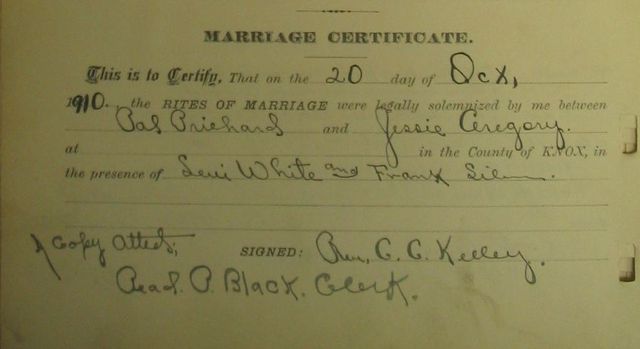 MARRIAGE CERTIFICATE.
This is to Certify, That on the 20 day of Oct,
1910. the RITES OF MARRIAGE were legally solemnized by me between
Prichard and Jessie Gregory.
at in the County of KNOX, in
the presence of Levi White and Frank
A Copy Attest; SIGNED: Rev. C. C. Kelley.
P. Black. Clerk.